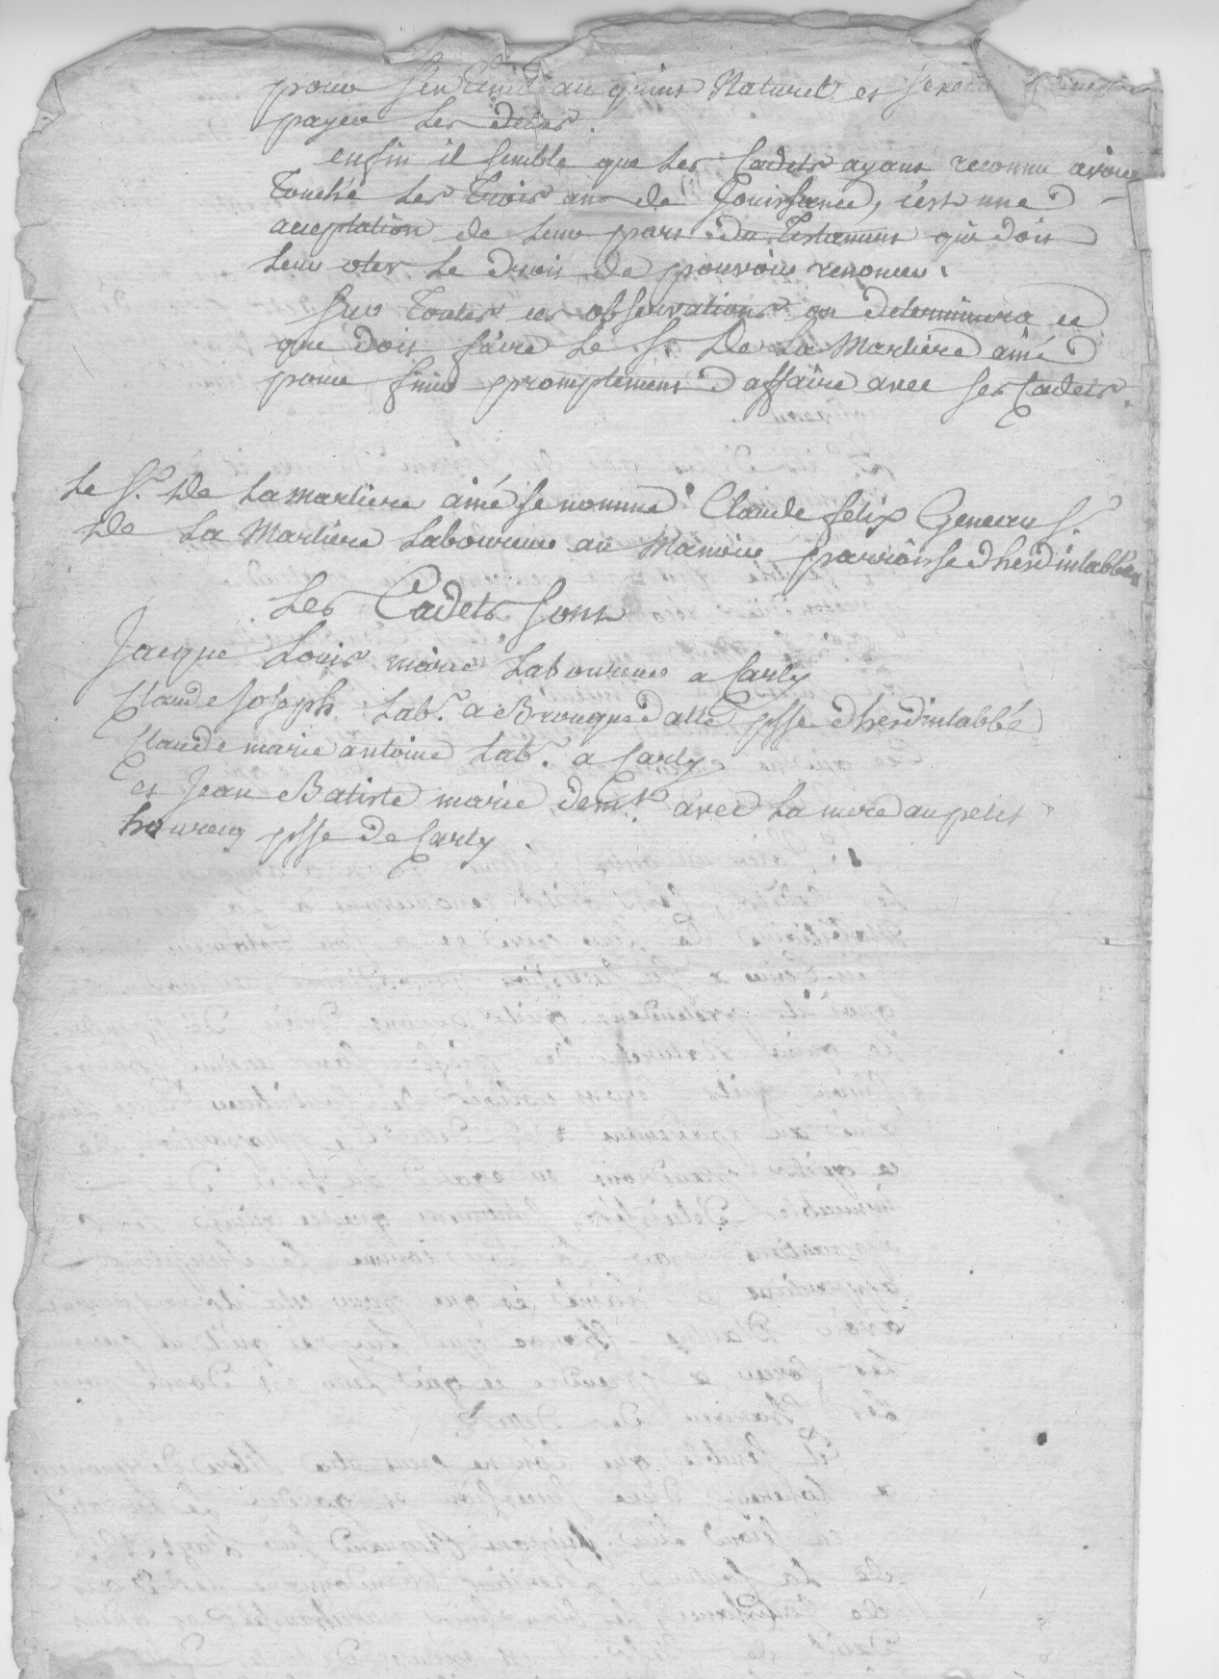 pour s'en tenir au quint Naturel et
payer les dettes.
enfin il semble que les Cadets ayant reconnu avoir
Touché les trois ans de Jouissance, c'est une
acceptation de leur part du Testament qui doit
leur oter le droit de pouvoir renoncer.
Sur Toutes ces observations on determinera ce
que doit faire le Sr De La Marliere ainé
pour finir promptement d'affaire avec ses Cadets.
Le Sr. De Lamarliere ainé se nomme Claude felix Geneau Sr.
De La Marliere Laboureur au Manoir parroisse d'hesdinlabbé
Les Cadets sont
Jacque Louis marie Laboureur a Carly
Claude Joseph Labr. a Brouquedalle psse d'hesdinlabbé
Claude marie antoine Labr. a Carly
et Jean Batiste marie demt. avec La mere au petit
hourecq psse de Carly.